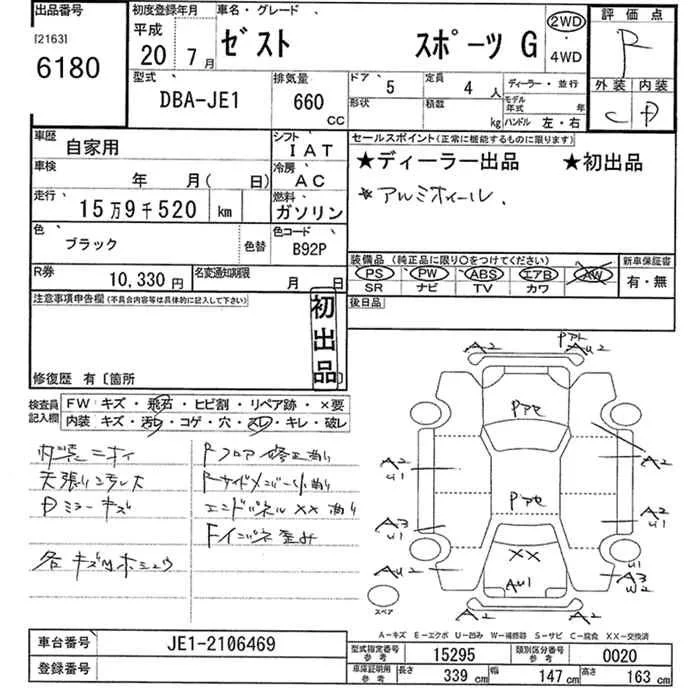 出品番号 [2163] 6180
初度登録年月 平成 20年 7月
車名・グレード ゼスト スポーツ G
2WD・4WD
評価点 R
外装 C 内装 D
型式 DBA-JE1
排気量 660 CC
ドア 5 形状
定員 4人 積載 kg
ディーラー・並行
モデル年式 年
ハンドル 左・右
車歴 自家用
シフト IAT
車検 年 月( 日)
冷房 AC
走行 15万9千520 km
燃料 ガソリン
色 ブラック 色替
色コード B92P
R券 10,330円
名変通知期限 月 日
セールスポイント(正常に機能するものに限ります)
★ディーラー出品 ★初出品
* アルミホイール.
装備品(純正品に限り○をつけてください)
PS PW ABS エアB AW
SR ナビ TV カワ
新車保証書 有・無
後日品
注意事項申告欄(不具合内容等は具体的に記入して下さい)
初出品
修復歴 有〔箇所 〕
検査員記入欄
FW キズ・飛石・ヒビ割・リペア跡・×要
内装 キズ・汚れ・コゲ・穴・スレ・キレ・破レ
内装ニオイ
天張り汚レ大
Dミラーキズ
各キズ凹ホシュウ
Rフロア修正あり
RサイドメンバーS有り
エンドパネル××有り
Fインパネ歪み
A2 Pアト AU2
Pアセ
A2 U1 A2
Pアセ
A3 U1 A2 U1
××
AU2 AU1 U1 A3 U2
A2 A2
スペア
A-キズ E-エクボ U-凹み W-補修跡 S-サビ C-腐食 XX-交換済
車台番号 JE1-2106469
登録番号
型式指定番号 参考 15295
類別区分番号 参考 0020
車庫証明用 参考 長さ 339 cm 幅 147 cm 高さ 163 cm